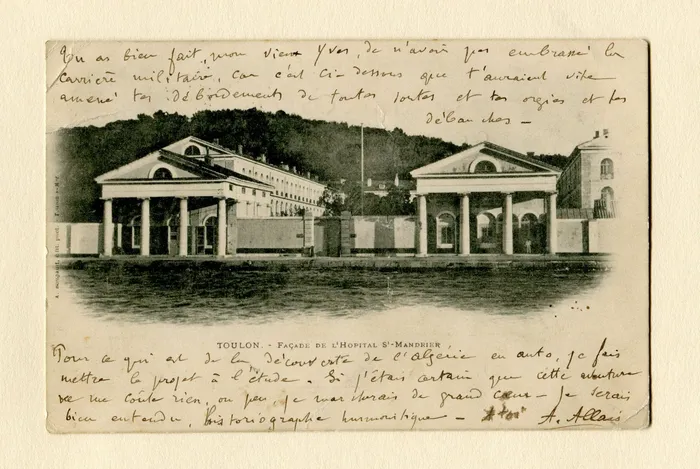 Tu as bien fait, mon vieux Yves, de n'avoir pas embrassé la
carrière militaire, car c'est ci-dessous que t'auraient vite
amené tes débordements de toutes sortes et tes orgies et tes
débauches —
TOULON. - FAÇADE DE L'HOPITAL St-MANDRIER
Pour ce qui est de la découverte de l'algérie en auto, je fais
mettre le projet à l'étude. Si j'étais certain que cette aventure
ne me coûte rien, ou peu, je marcherais de grand cœur — Je serais
bien entendu, historiographe humoristique —
A. Allais